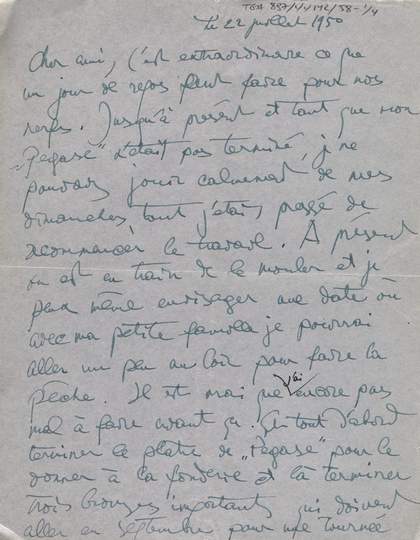 TGA 897/1/1/42/58-1/4
Le 22 juillet 1950
Cher ami, C'est extraordinaire ce que
un jour de repos peut faire pour nos
nerfs. Jusqu'à présent et tant que mon
"Pegase" n'était pas terminé, je ne
pouvais jouir calmement de mes
dimanches, tant j'étais pressé de
recommencer le travail. A présent
on est en train de le mouler et je
peux même envisager une date où
avec ma petite famille je pourrai
aller un peu au Loir pour faire la
pêche. Il est vrai que j'ai encore pas
mal à faire avant ça. tout d'abord
terminer le platre de "Pegase" pour le
donner à la fonderie et là terminer
trois bronzes importants qui doivent
aller en septembre pour une tournée